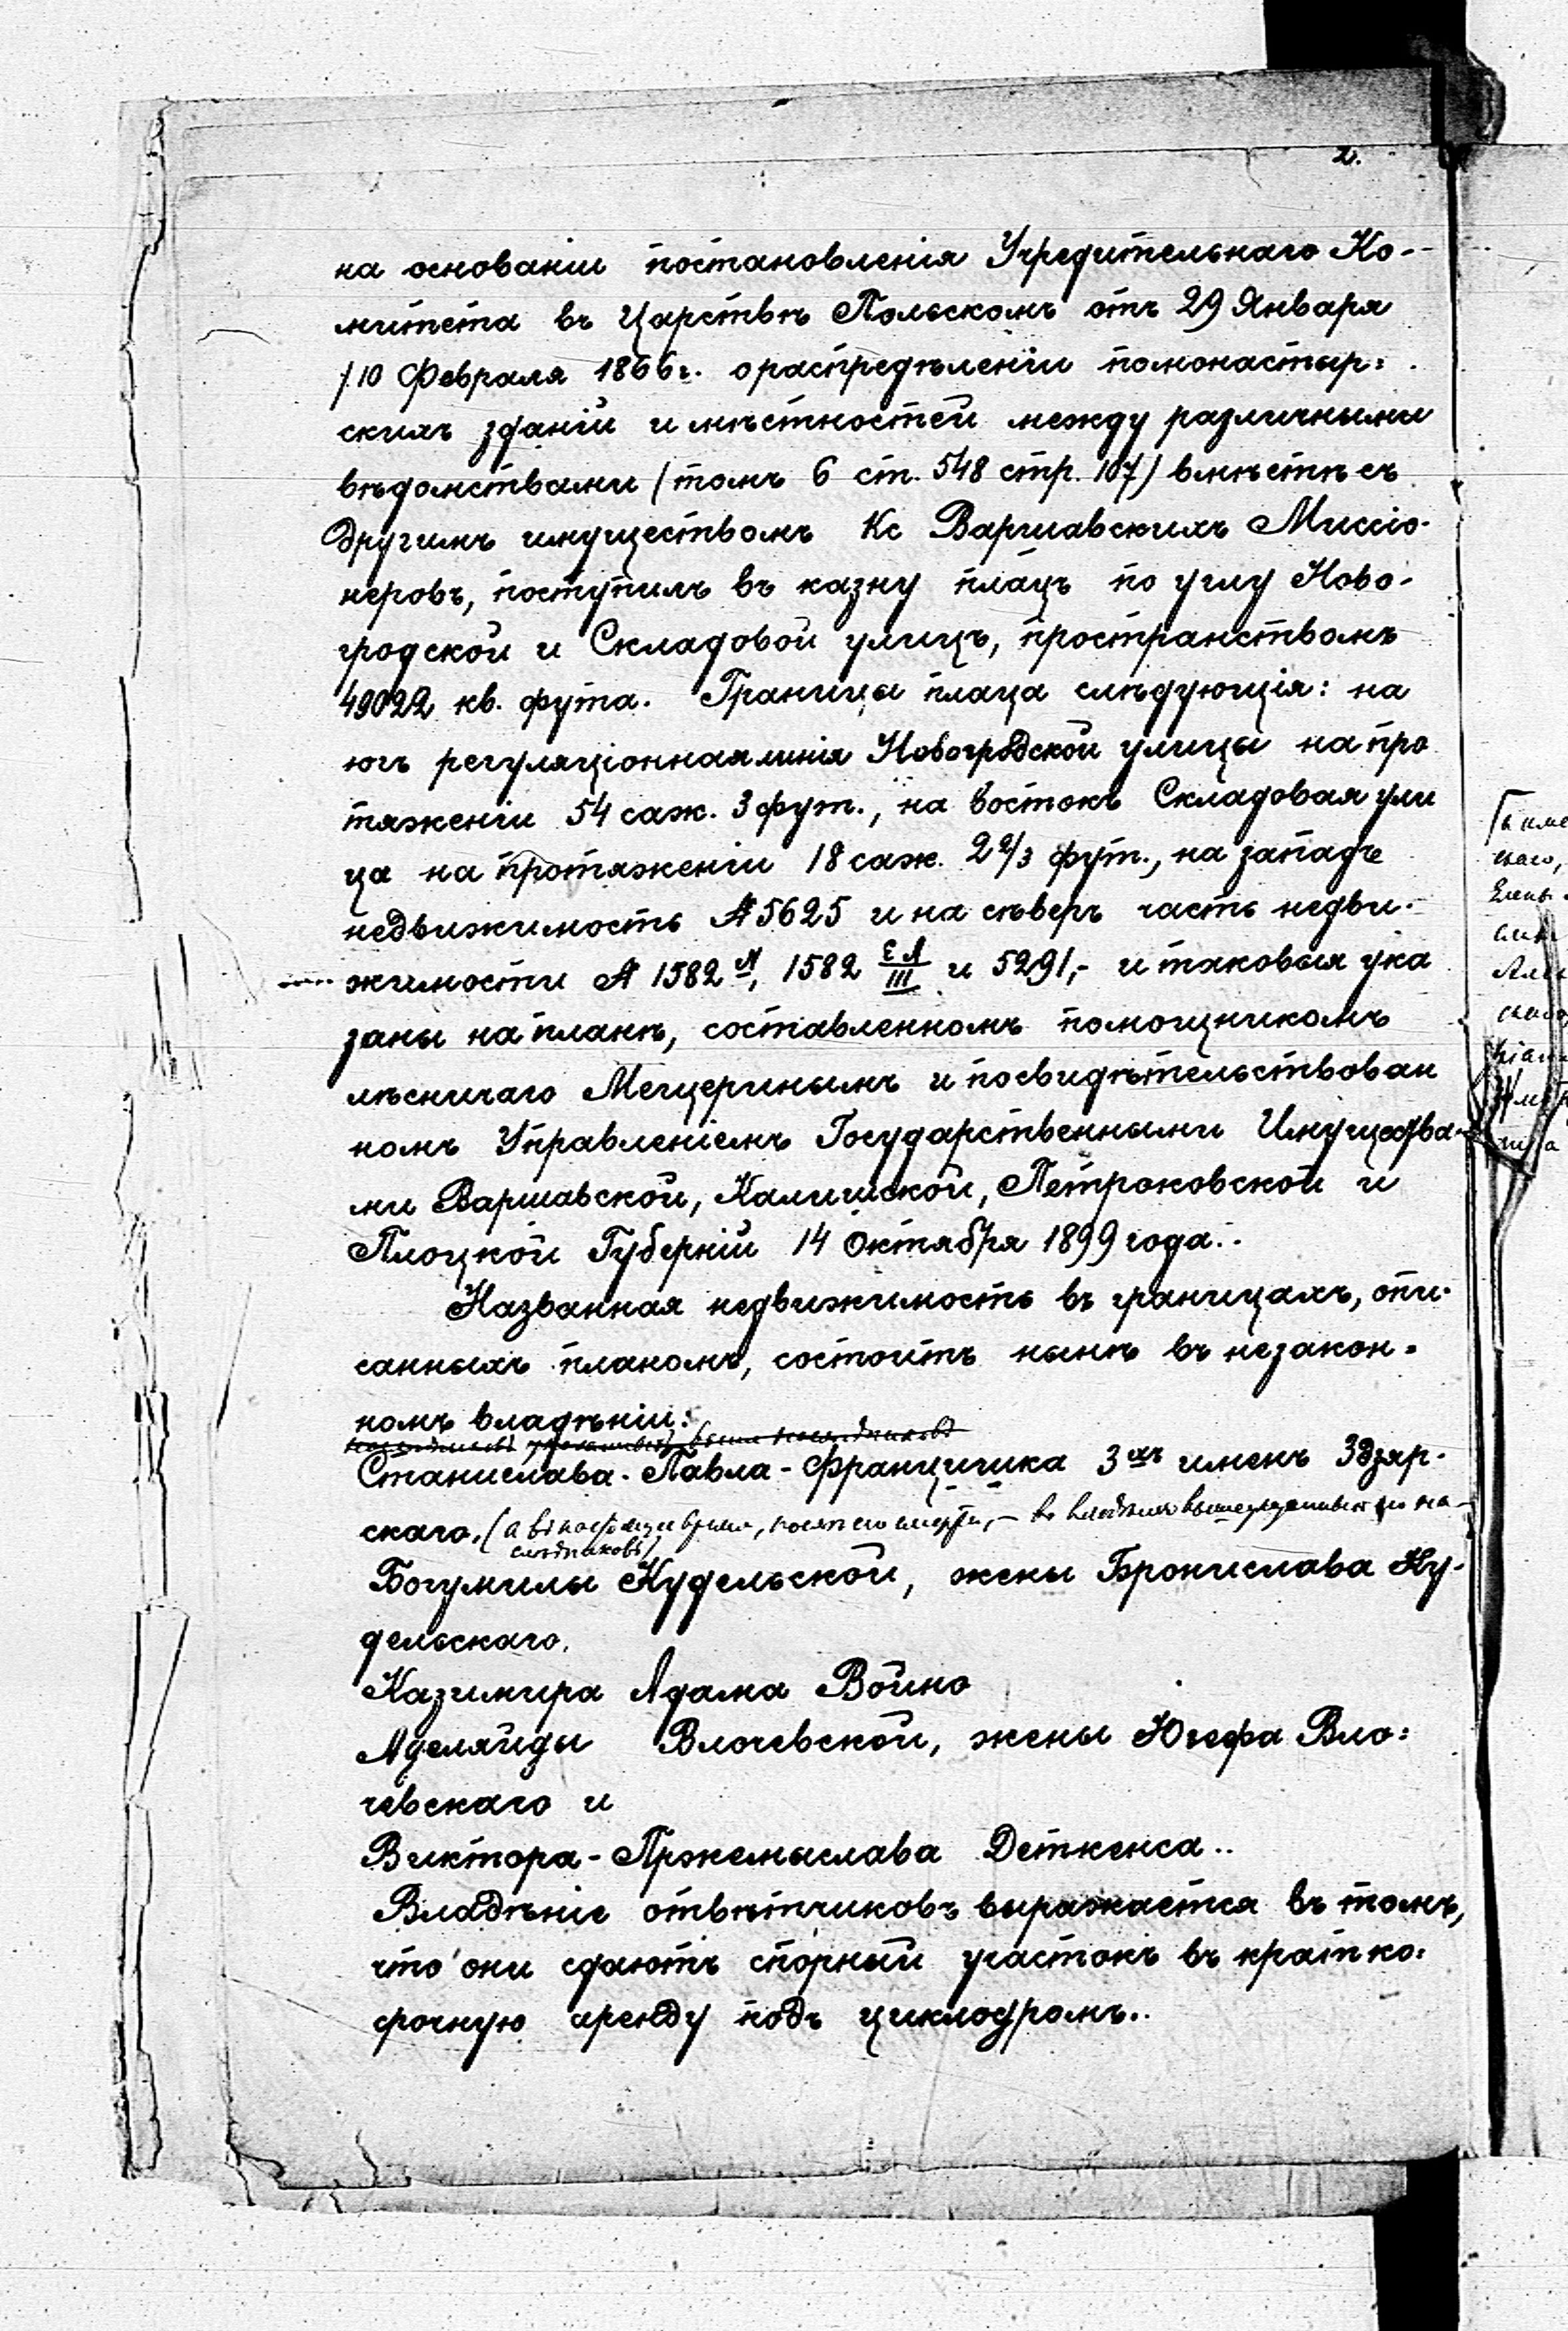 2.
на основаніи постановленія Учредительнаго Ко-
митета въ Царствѣ Польскомъ отъ 29 Января
/10 Февраля 1866г. о распредѣленіи помонастыр=
скихъ зданій и мѣстностей между различными
вѣдомствами (томъ 6 ст. 548 стр. 107) вмѣстѣ съ
другимъ имуществомъ Кс Варшавскихъ Миссіо-
неровъ, поступилъ въ казну плацъ по углу Ново-
гродской и Складовой улицъ, пространствомъ
49022 кв. фута. Границы плаца слѣдующія: на
югъ регуляціонная линія Новогродской улицы на про
тяженіи 54 саж. 3 фут., на востокъ Складовая ули
ца на протяженіи 18 саж. 2 2/3 фут., на западъ
недвижимость № 5625 и на сѣверъ часть недви-
жимости № 1582 N, 1582 ЕЛ/III и 5291,- и таковыя ука
заны на планѣ, составленномъ помощникомъ
лѣсничаго Мещеринымъ и посвидѣтельствован
номъ Управленіемъ Государственными Имущества-
ми Варшавской, Калишской, Петроковской и
Плоцкой Губерній 14 Октября 1899 года..
Названная недвижимость въ границахъ, опи-
санныхъ планомъ, состоитъ нынѣ въ незакон=
номъ владѣніи:
Станислава-Павла-Францишка 3хъ именъ Здзяр-
скаго. (а въ настоящее время, послѣ его смерти, - во владѣнiи вышеуказанныхъ его на-
слѣдниковъ)
Богумилы Кудельской, жены Бронислава Ку-
дельскаго.
Казимира Адама Войно
Аделяйды Влочевской, жены Юзефа Вло=
чевскаго и
Виктора-Пржемыслава Деткенса..
Владѣніе отвѣтчиковъ выражается въ томъ,
что они сдаютъ спорный участокъ въ кратко=
срочную аренду подъ циклодромъ..